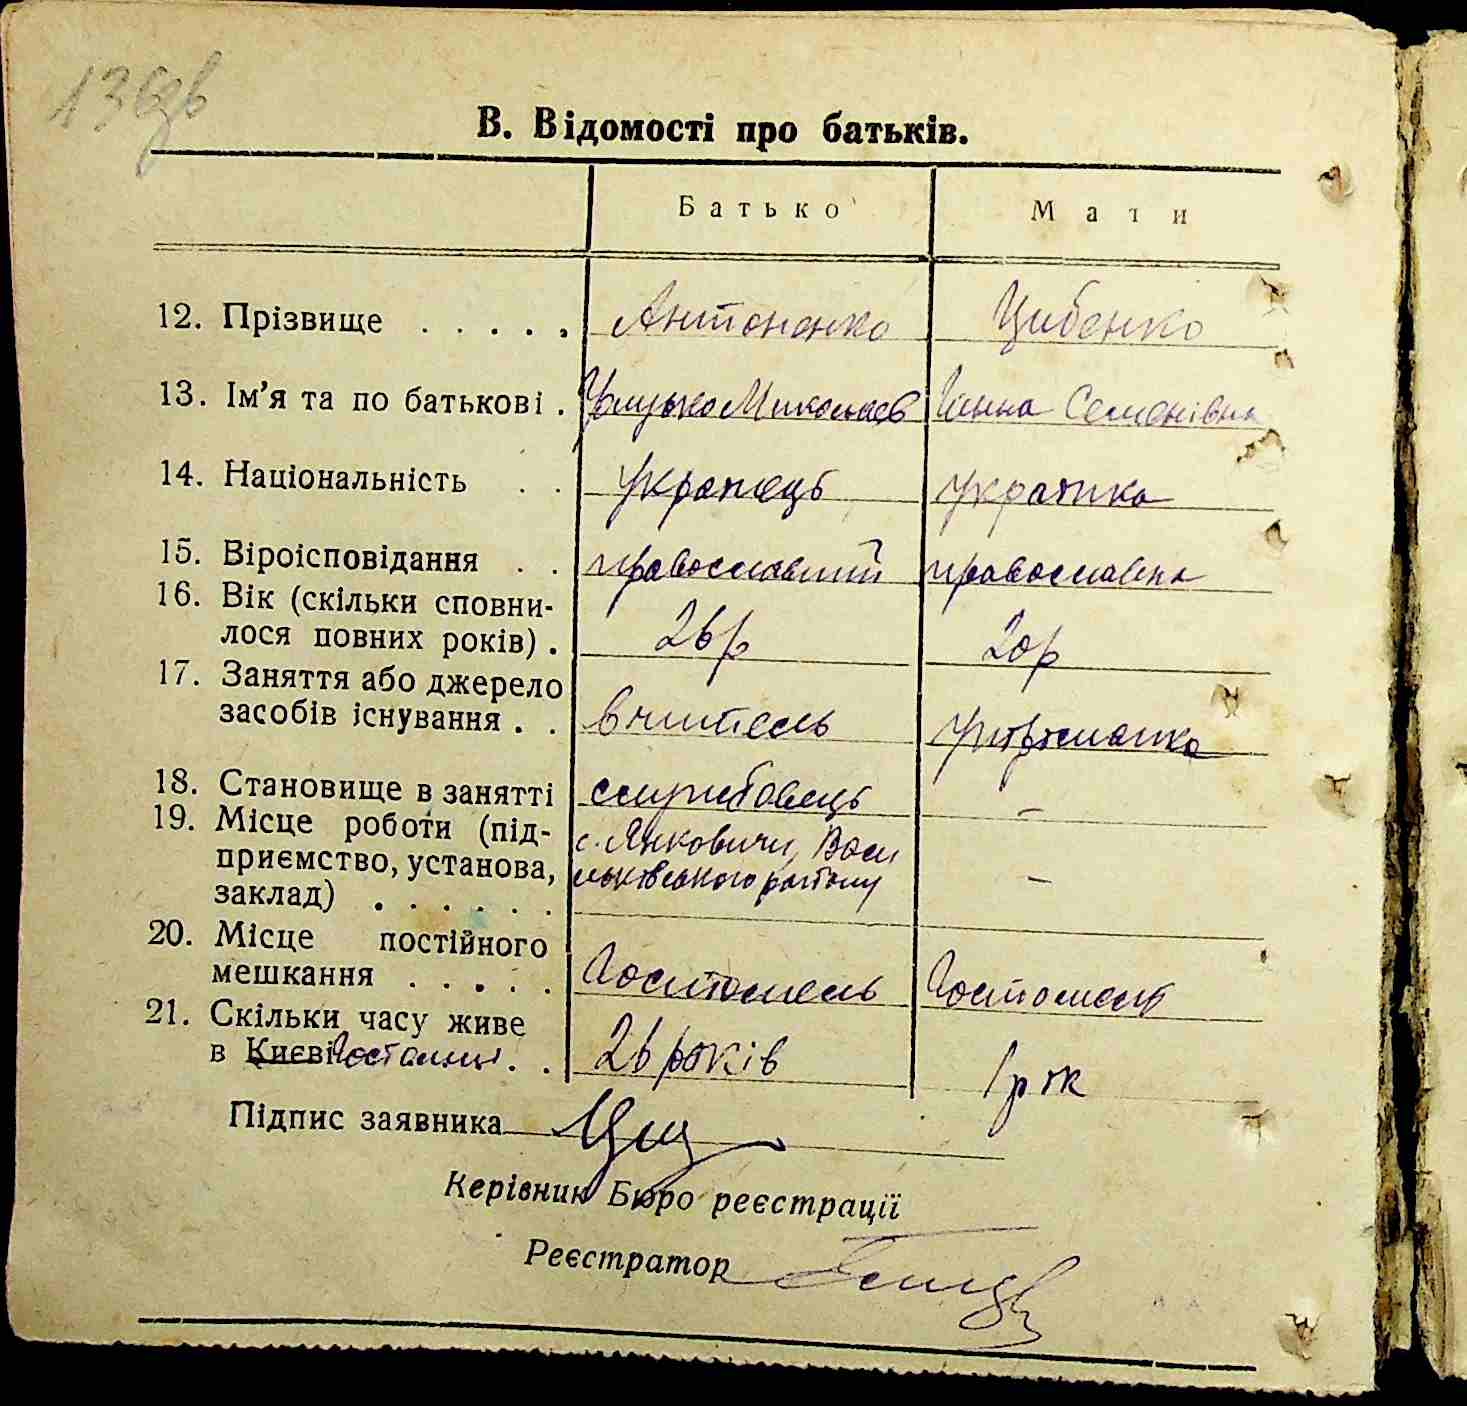 13 зв
В. Відомості про батьків.
Батько Мати
12. Прізвище . . . . . Антоненко Цибенко
13. Ім'я та по батькові . Миколаєв Ганна Семенівна
14. Національність . . Українець Українка
15. Віроісповідання . . православний православна
16. Вік (скільки сповни-
лося повних років) . 26 р 20 р
17. Заняття або джерело
засобів існування . . вчитель утриманка
18. Становище в занятті службовець -
19. Місце роботи (під- с. Янковичи, Васи
приємство, установа, льківського району -
заклад) . . . . . .
20. Місце постійного
мешкання . . . . . Гостомель Гостомель
21. Скільки часу живе
в Києві Гостомелі . . 26 років 1 рік
Підпис заявника
Керівник Бюро реєстрації
Реєстратор